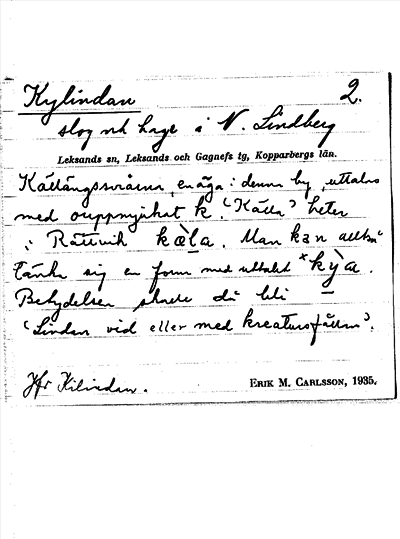 Kylindan 2.
slog och hage i N. Lindberg
Leksands sn, Leksands och Gagnefs tg, Kopparbergs län.
en äga i denna by, uttalas
med ouppmjukat k. "Källa" heter
i Rättvik kæla. Man kan alltså
tänka sig en form med uttalet *kỳa.
Betydelsen skulle då bli
"Lindan vid eller med kreatursfållan".
Jfr Kilindan.
ERIK M. CARLSSON, 1935.